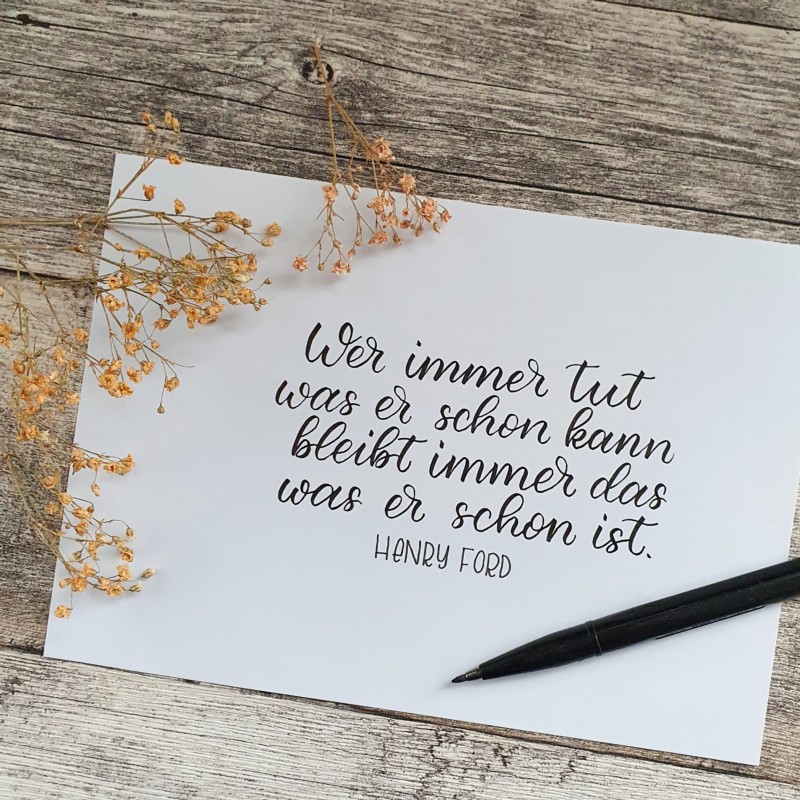 Wer immer tut
was er schon kann
bleibt immer das
was er schon ist.
HENRY FORD